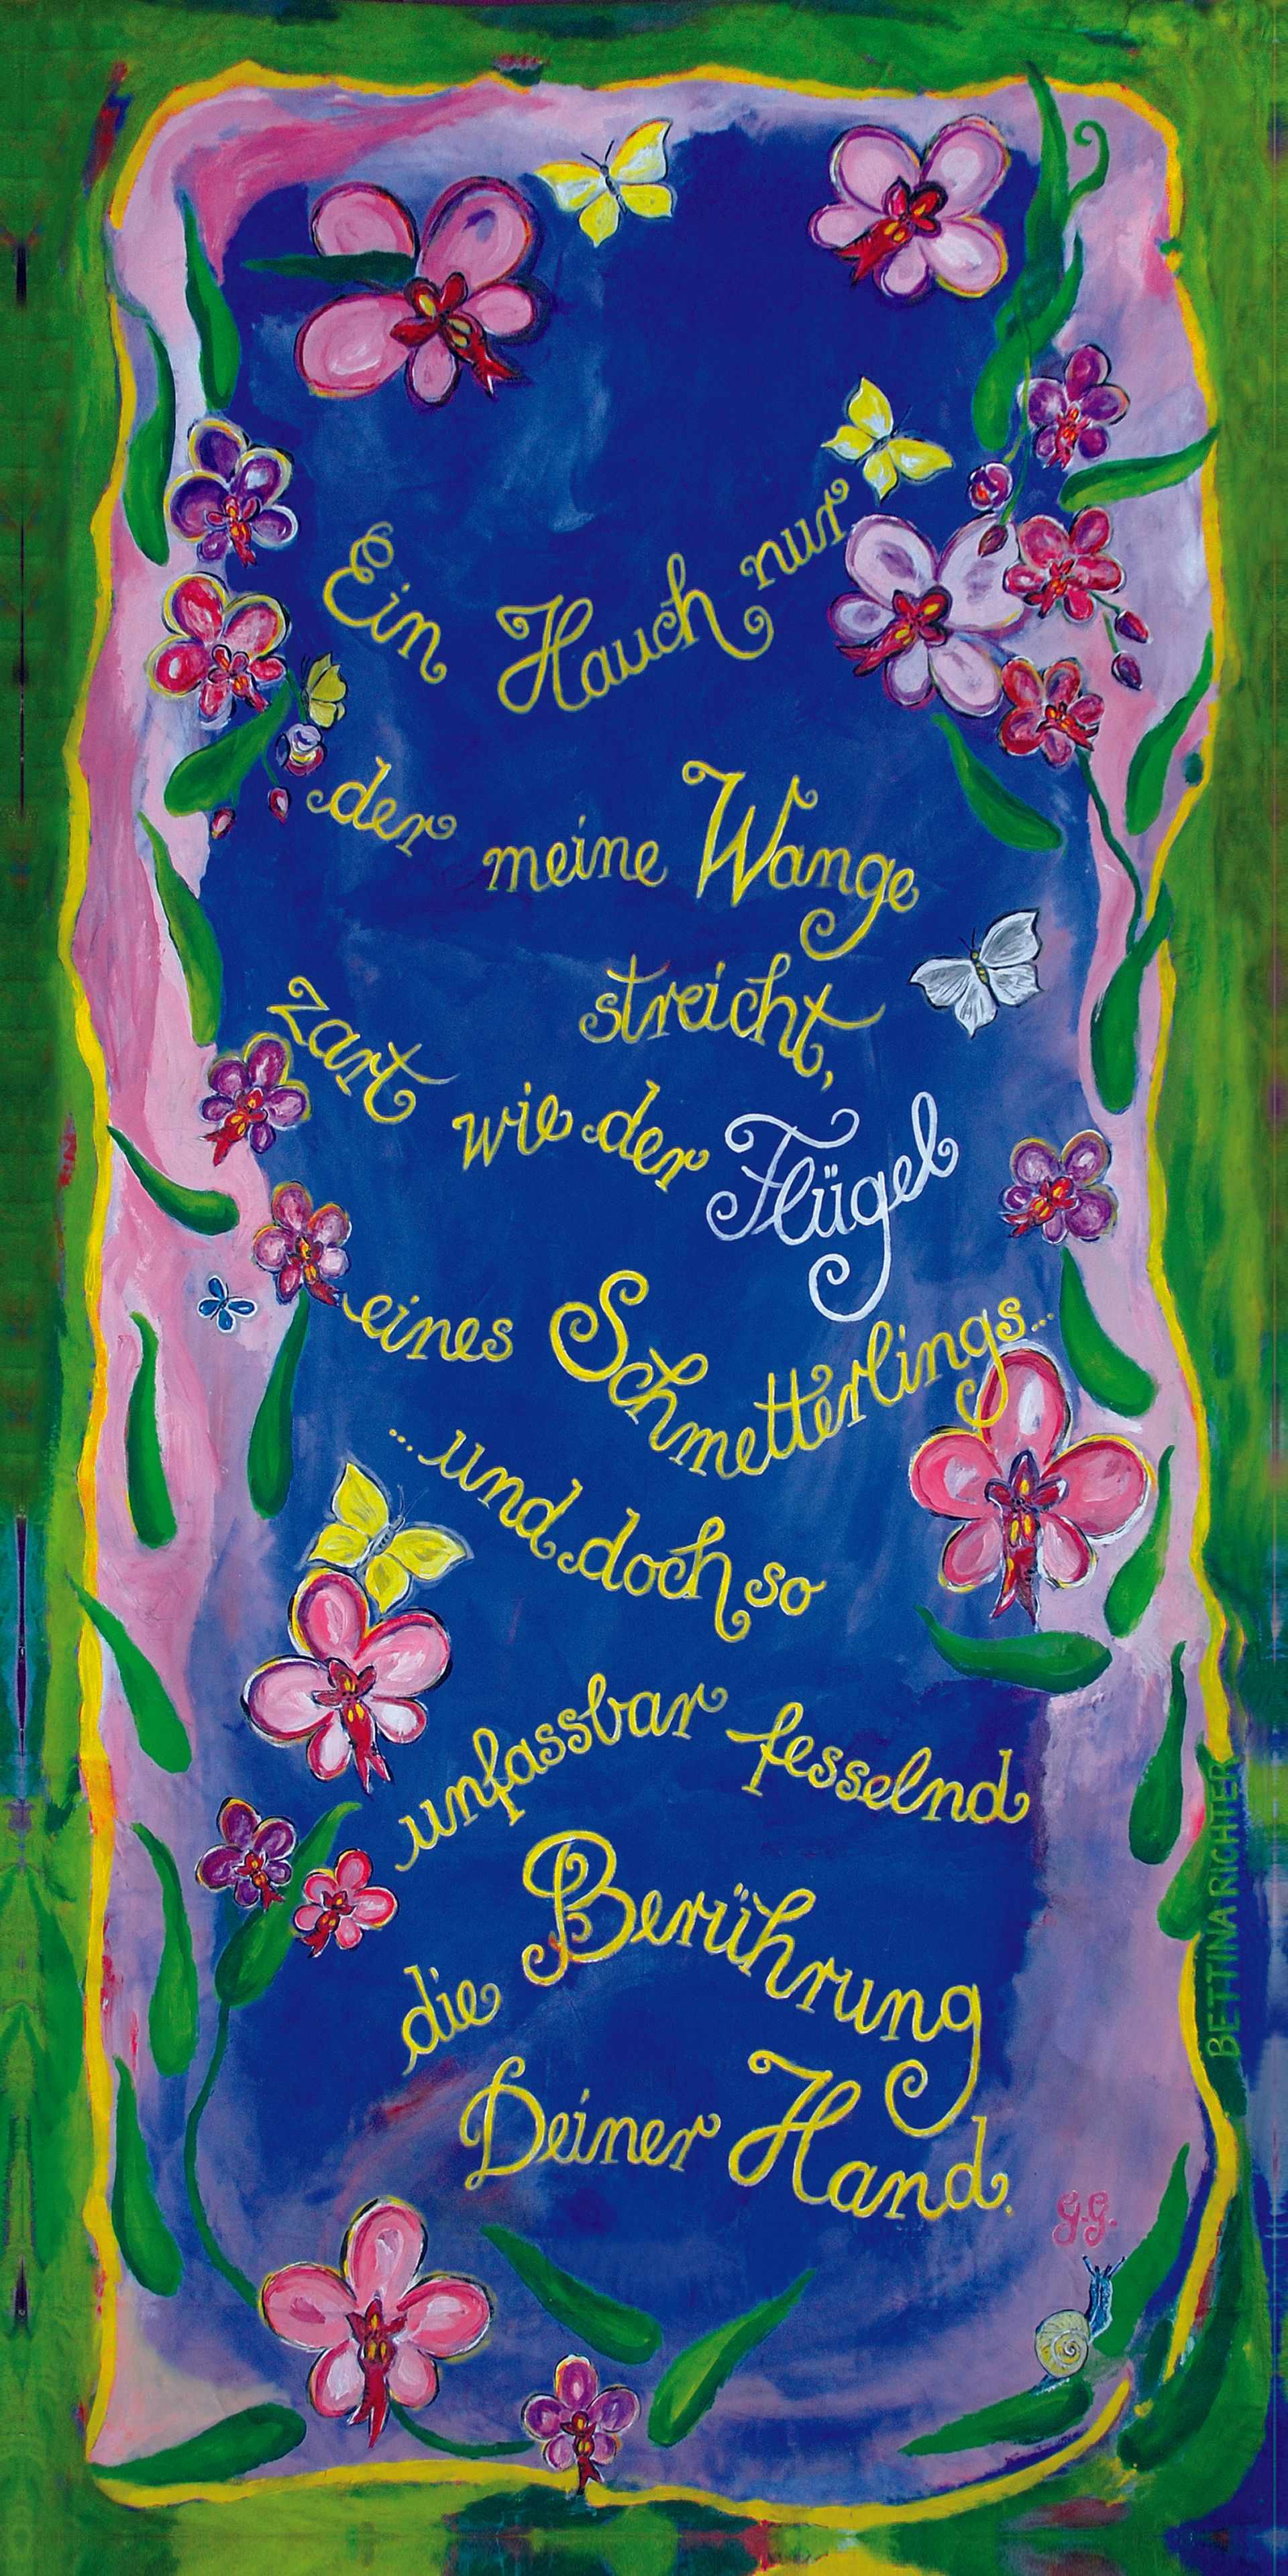 Ein Hauch nur
der meine Wange
streicht,
zart wie der Flügel
eines Schmetterlings...
...und doch so
unfassbar fesselnd
die Berührung
Deiner Hand.
G.G.
BETTINA RICHTER